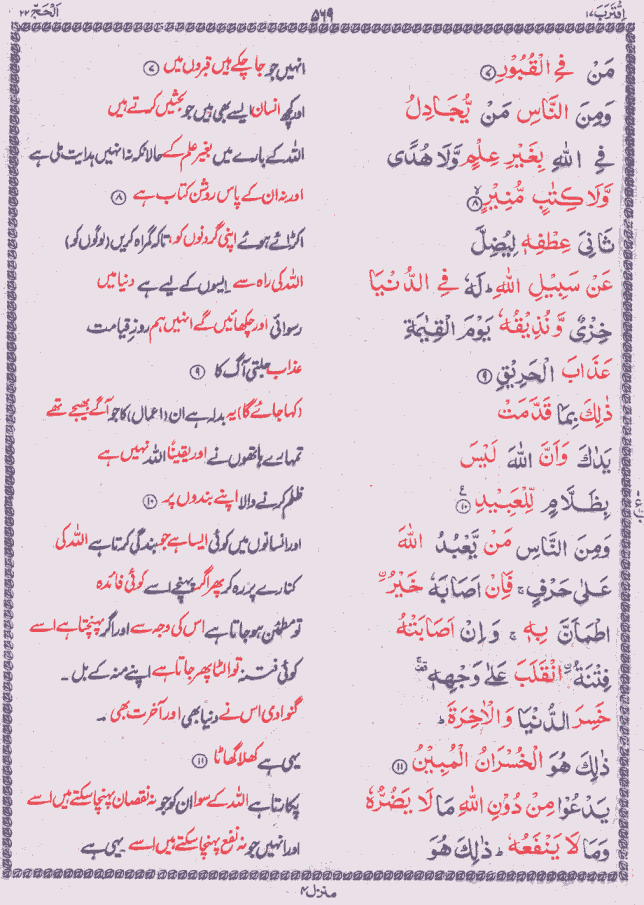 اِقْتَرَبَ ۱۷ ۵۶۹ اَلْحَجّ ۲۲
مَنْ فِي الْقُبُوْرِ ۷ انہیں جو جا چکے ہیں قبروں میں ۷
وَمِنَ النَّاسِ مَنْ يُّجَادِلُ اور کچھ انسان ایسے بھی ہیں جو بحثیں کرتے ہیں
فِي اللّٰهِ بِغَيْرِ عِلْمٍ وَّلَا هُدًى اللہ کے بارے میں بغیر علم کے حالانکہ نہ انہیں ہدایت ملی ہے
وَّلَا كِتٰبٍ مُّنِيْرٍ ۸ اور نہ ان کے پاس روشن کتاب ہے ۸
ثَانِيَ عِطْفِهٖ لِيُضِلَّ اکڑائے ہوئے اپنی گردنوں کو، تاکہ گمراہ کریں (لوگوں کو)
عَنْ سَبِيْلِ اللّٰهِ ؕ لَهٗ فِي الدُّنْيَا اللہ کی راہ سے ایسوں کے لیے ہے دنیا میں
خِزْيٌ وَّنُذِيْقُهٗ يَوْمَ الْقِيٰمَةِ رسوائی اور چکھائیں گے انہیں ہم روزِ قیامت
عَذَابَ الْحَرِيْقِ ۹ عذاب جلتی آگ کا ۹
ذٰلِكَ بِمَا قَدَّمَتْ (کہا جائے گا) یہ بدلہ ہے ان (اعمال) کا جو آگے بھیجے تھے
يَدٰكَ وَاَنَّ اللّٰهَ لَيْسَ تمہارے ہاتھوں نے اور یقیناً اللہ نہیں ہے
بِظَلَّامٍ لِّلْعَبِيْدِ ۱۰ ظلم کرنے والا اپنے بندوں پر ۱۰
وَمِنَ النَّاسِ مَنْ يَّعْبُدُ اللّٰهَ اور انسانوں میں کوئی ایسا ہے جو بندگی کرتا ہے اللہ کی
عَلٰى حَرْفٍ ۚ فَاِنْ اَصَابَهٗ خَيْرُ کنارے پر رہ کر پھر اگر پہنچے اسے کوئی فائدہ
اطْمَاَنَّ بِهٖ ۚ وَاِنْ اَصَابَتْهُ تو مطمئن ہو جاتا ہے اس کی وجہ سے اور اگر پہنچتا ہے اسے
فِتْنَةُ انْقَلَبَ عَلٰى وَجْهِهٖ کوئی فتنہ تو الٹا پھر جاتا ہے اپنے منہ کے بل ۔
خَسِرَ الدُّنْيَا وَالْاٰخِرَةَ ؕ گنوا دی اس نے دنیا بھی اور آخرت بھی ۔
ذٰلِكَ هُوَ الْخُسْرَانُ الْمُبِيْنُ ۱۱ یہی ہے کھلا گھاٹا ۱۱
يَدْعُوْا مِنْ دُوْنِ اللّٰهِ مَا لَا يَضُرُّهٗ پکارتا ہے اللہ کے سوا ان کو جو نہ نقصان پہنچا سکتے ہیں اسے
وَمَا لَا يَنْفَعُهٗ ؕ ذٰلِكَ هُوَ اور انہیں جو نہ نفع پہنچا سکتے ہیں اسے یہی ہے
منزل ۴